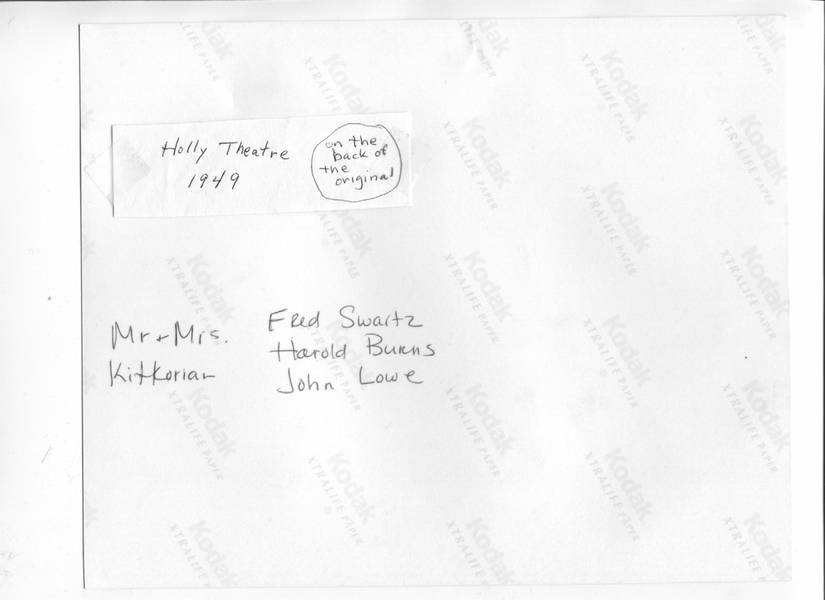 Holly Theatre
1949
on the
back of
the
original
Mr + Mrs.
Kitkorian
Fred Swartz
Harold Burns
John Lowe
Kodak
XTRALIFE PAPER